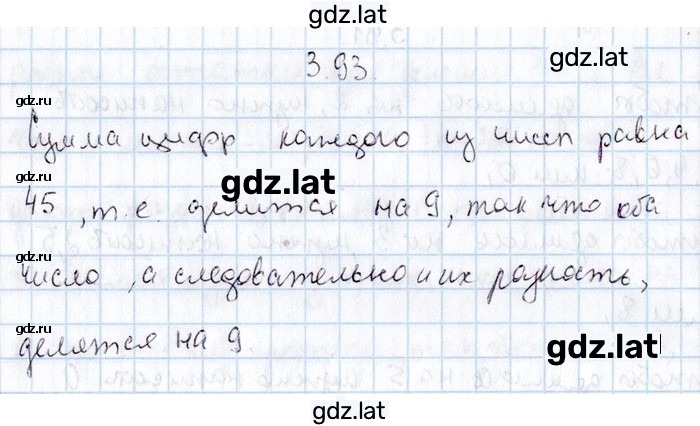 gdz.lat
gdz.lat
3.93.
gdz.ru
Сумма цифр каждого из чисел равна
gdz.lat
gdz.ru
45, т.е. делится на 9, так что оба
gdz.ru
число, а следовательно и их разность,
gdz.ru
делятся на 9.
gdz.lat
gdz.lat